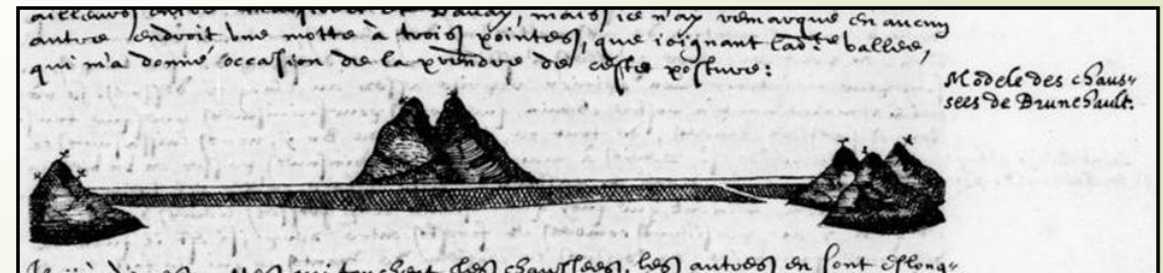 ailleurs entre et Bauay, mais ie n'ay remarqué en aucun
autre endroit vne motte à trois pointes, que ioignant lad.te vallée,
qui m'a donné occasion de la prendre de ceste posture:
Modele des chaus-
sées de Brunehault.
qui touchent les chaussées, les autres en sont eslong-